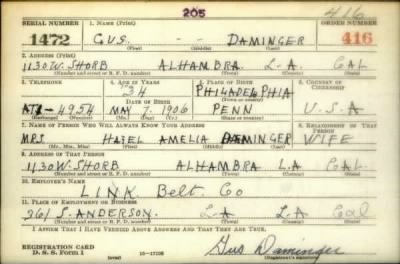 205
416
SERIAL NUMBER 1. NAME (Print) ORDER NUMBER
1472 GUS. - - DAMINGER 416
(First) (Middle) (Last)
2. ADDRESS (Print)
1130 W. SHORB ALHAMBRA L.A CAL
(Number and street or R. F. D. number) (Town) (County) (State)
3. TELEPHONE 4. AGE IN YEARS 5. PLACE OF BIRTH 6. COUNTRY OF CITIZENSHIP
34 PHILADELPHIA
DATE OF BIRTH (Town or county)
AT1-4954 MAY 7, 1906 PENN U.S.A
(Exchange) (Number) (Mo.) (Day) (Yr.) (State or country)
7. NAME OF PERSON WHO WILL ALWAYS KNOW YOUR ADDRESS 8. RELATIONSHIP OF THAT PERSON
MRS HAZEL AMELIA DAMINGER WIFE
(Mr., Mrs., Miss) (First) (Middle) (Last)
9. ADDRESS OF THAT PERSON
1130 W. SHORB ALHAMBRA L.A CAL.
(Number and street or R. F. D. number) (Town) (County) (State)
10. EMPLOYER'S NAME
LINK Belt. Co
11. PLACE OF EMPLOYMENT OR BUSINESS
361 S. ANDERSON. L.A L.A Cal
(Number and street or R. F. D. number) (Town) (County) (State)
I AFFIRM THAT I HAVE VERIFIED ABOVE ANSWERS AND THAT THEY ARE TRUE.
REGISTRATION CARD
D. S. S. Form 1 (over) Gus Daminger
(Registrant's signature)